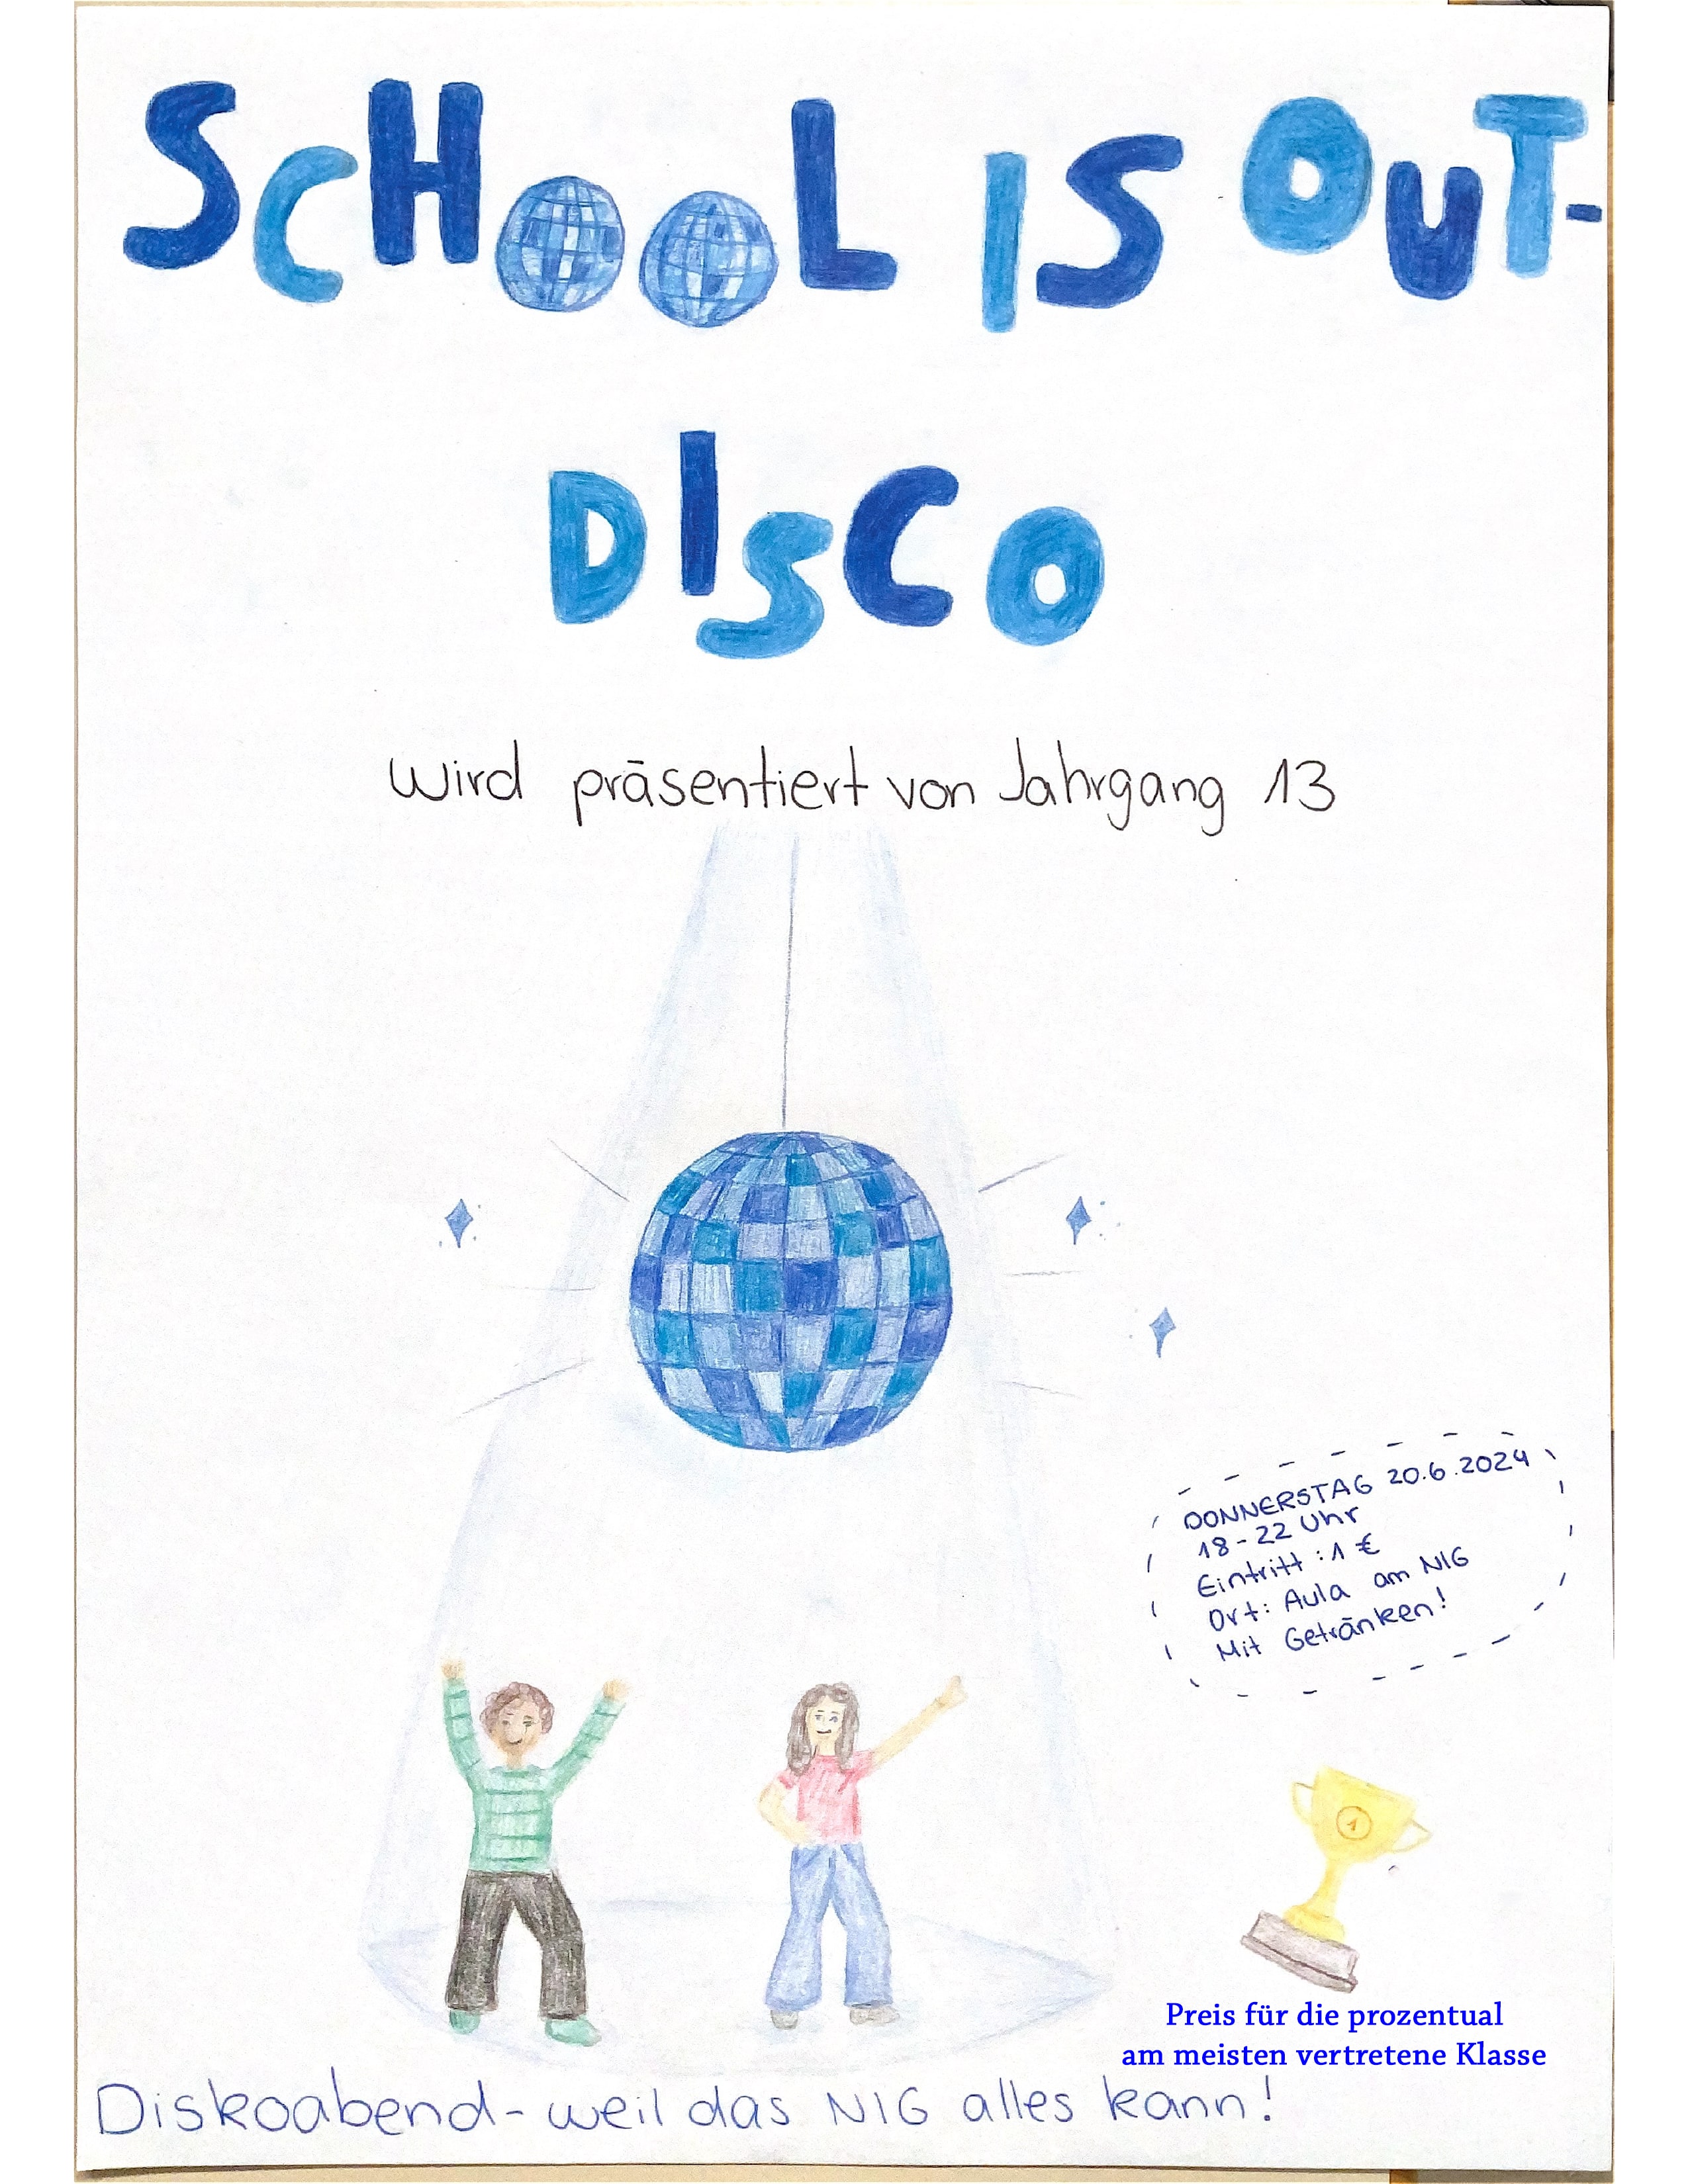 SCHOOL IS OUT-
DISCO
wird präsentiert von Jahrgang 13
DONNERSTAG 20.6.2024
18-22 Uhr
Eintritt: 1 €
Ort: Aula am NIG
Mit Getränken!
1
Preis für die prozentual
am meisten vertretene Klasse
Diskoabend - weil das NIG alles kann!